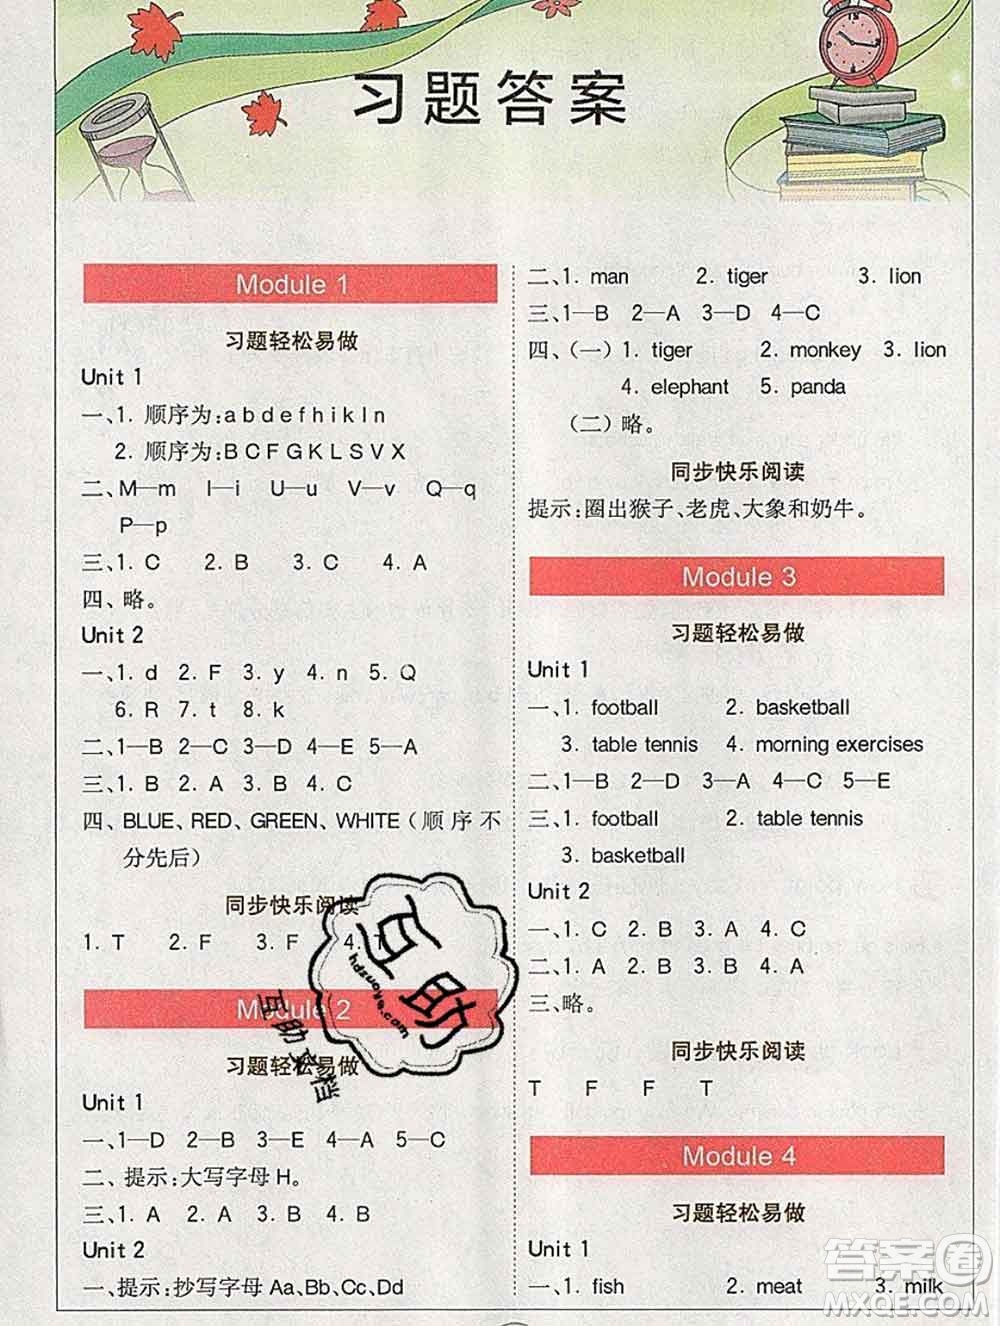 习题答案
Module 1
习题轻松易做
Unit 1
一、1. 顺序为:a b d e f h i k l n
2. 顺序为:B C F G K L S V X
二、M—m I—i U—u X—x Q—q
P—p
三、1. C 2. B 3. C 4. A
四、略。
Unit 2
一、1. d 2. F 3. y 4. n 5. Q
6. R 7. t 8. k
二、1—B 2—C 3—D 4—E 5—A
三、1. B 2. A 3. B 4. C
四、BLUE、RED、GREEN、WHITE（顺序不
分先后）
同步快乐阅读
1. T 2. F 3. F 4. T
Module 2
习题轻松易做
Unit 1
一、1—D 2—B 3—E 4—A 5—C
二、提示:大写字母 H。
三、1. A 2. A 3. B 4. B
Unit 2
一、提示:抄写字母 Aa、Bb、Cc、Dd
二、1. man 2. tiger 3. lion
三、1—B 2—A 3—D 4—C
四、（一）1. tiger 2. monkey 3. lion
4. elephant 5. panda
（二）略。
同步快乐阅读
提示:圈出猴子、老虎、大象和奶牛。
Module 3
习题轻松易做
Unit 1
一、1. football 2. basketball
3. table tennis 4. morning exercises
二、1—B 2—D 3—A 4—C 5—E
三、1. football 2. table tennis
3. basketball
Unit 2
一、1. C 2. B 3. A 4. C
二、1. A 2. B 3. B 4. A
三、略。
同步快乐阅读
T F F T
Module 4
习题轻松易做
Unit 1
一、1. fish 2. meat 3. milk
互助
hdzuoye.com
互助文档
答案圈
MXQE.COM